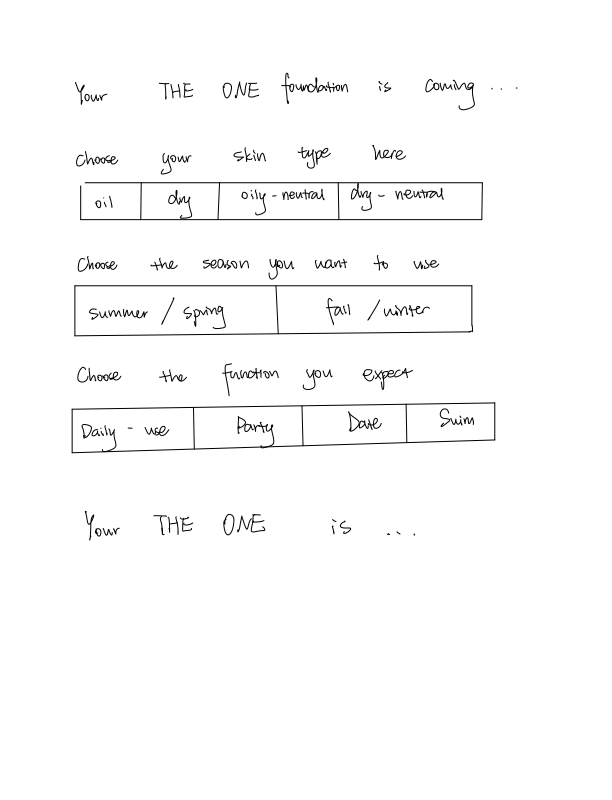 Your THE ONE foundation is coming ...
Choose your skin type here
oil dry oily - neutral dry - neutral
Choose the season you want to use
summer / spring fall / winter
Choose the function you expect
Daily - use Party Date Swim
Your THE ONE is ...